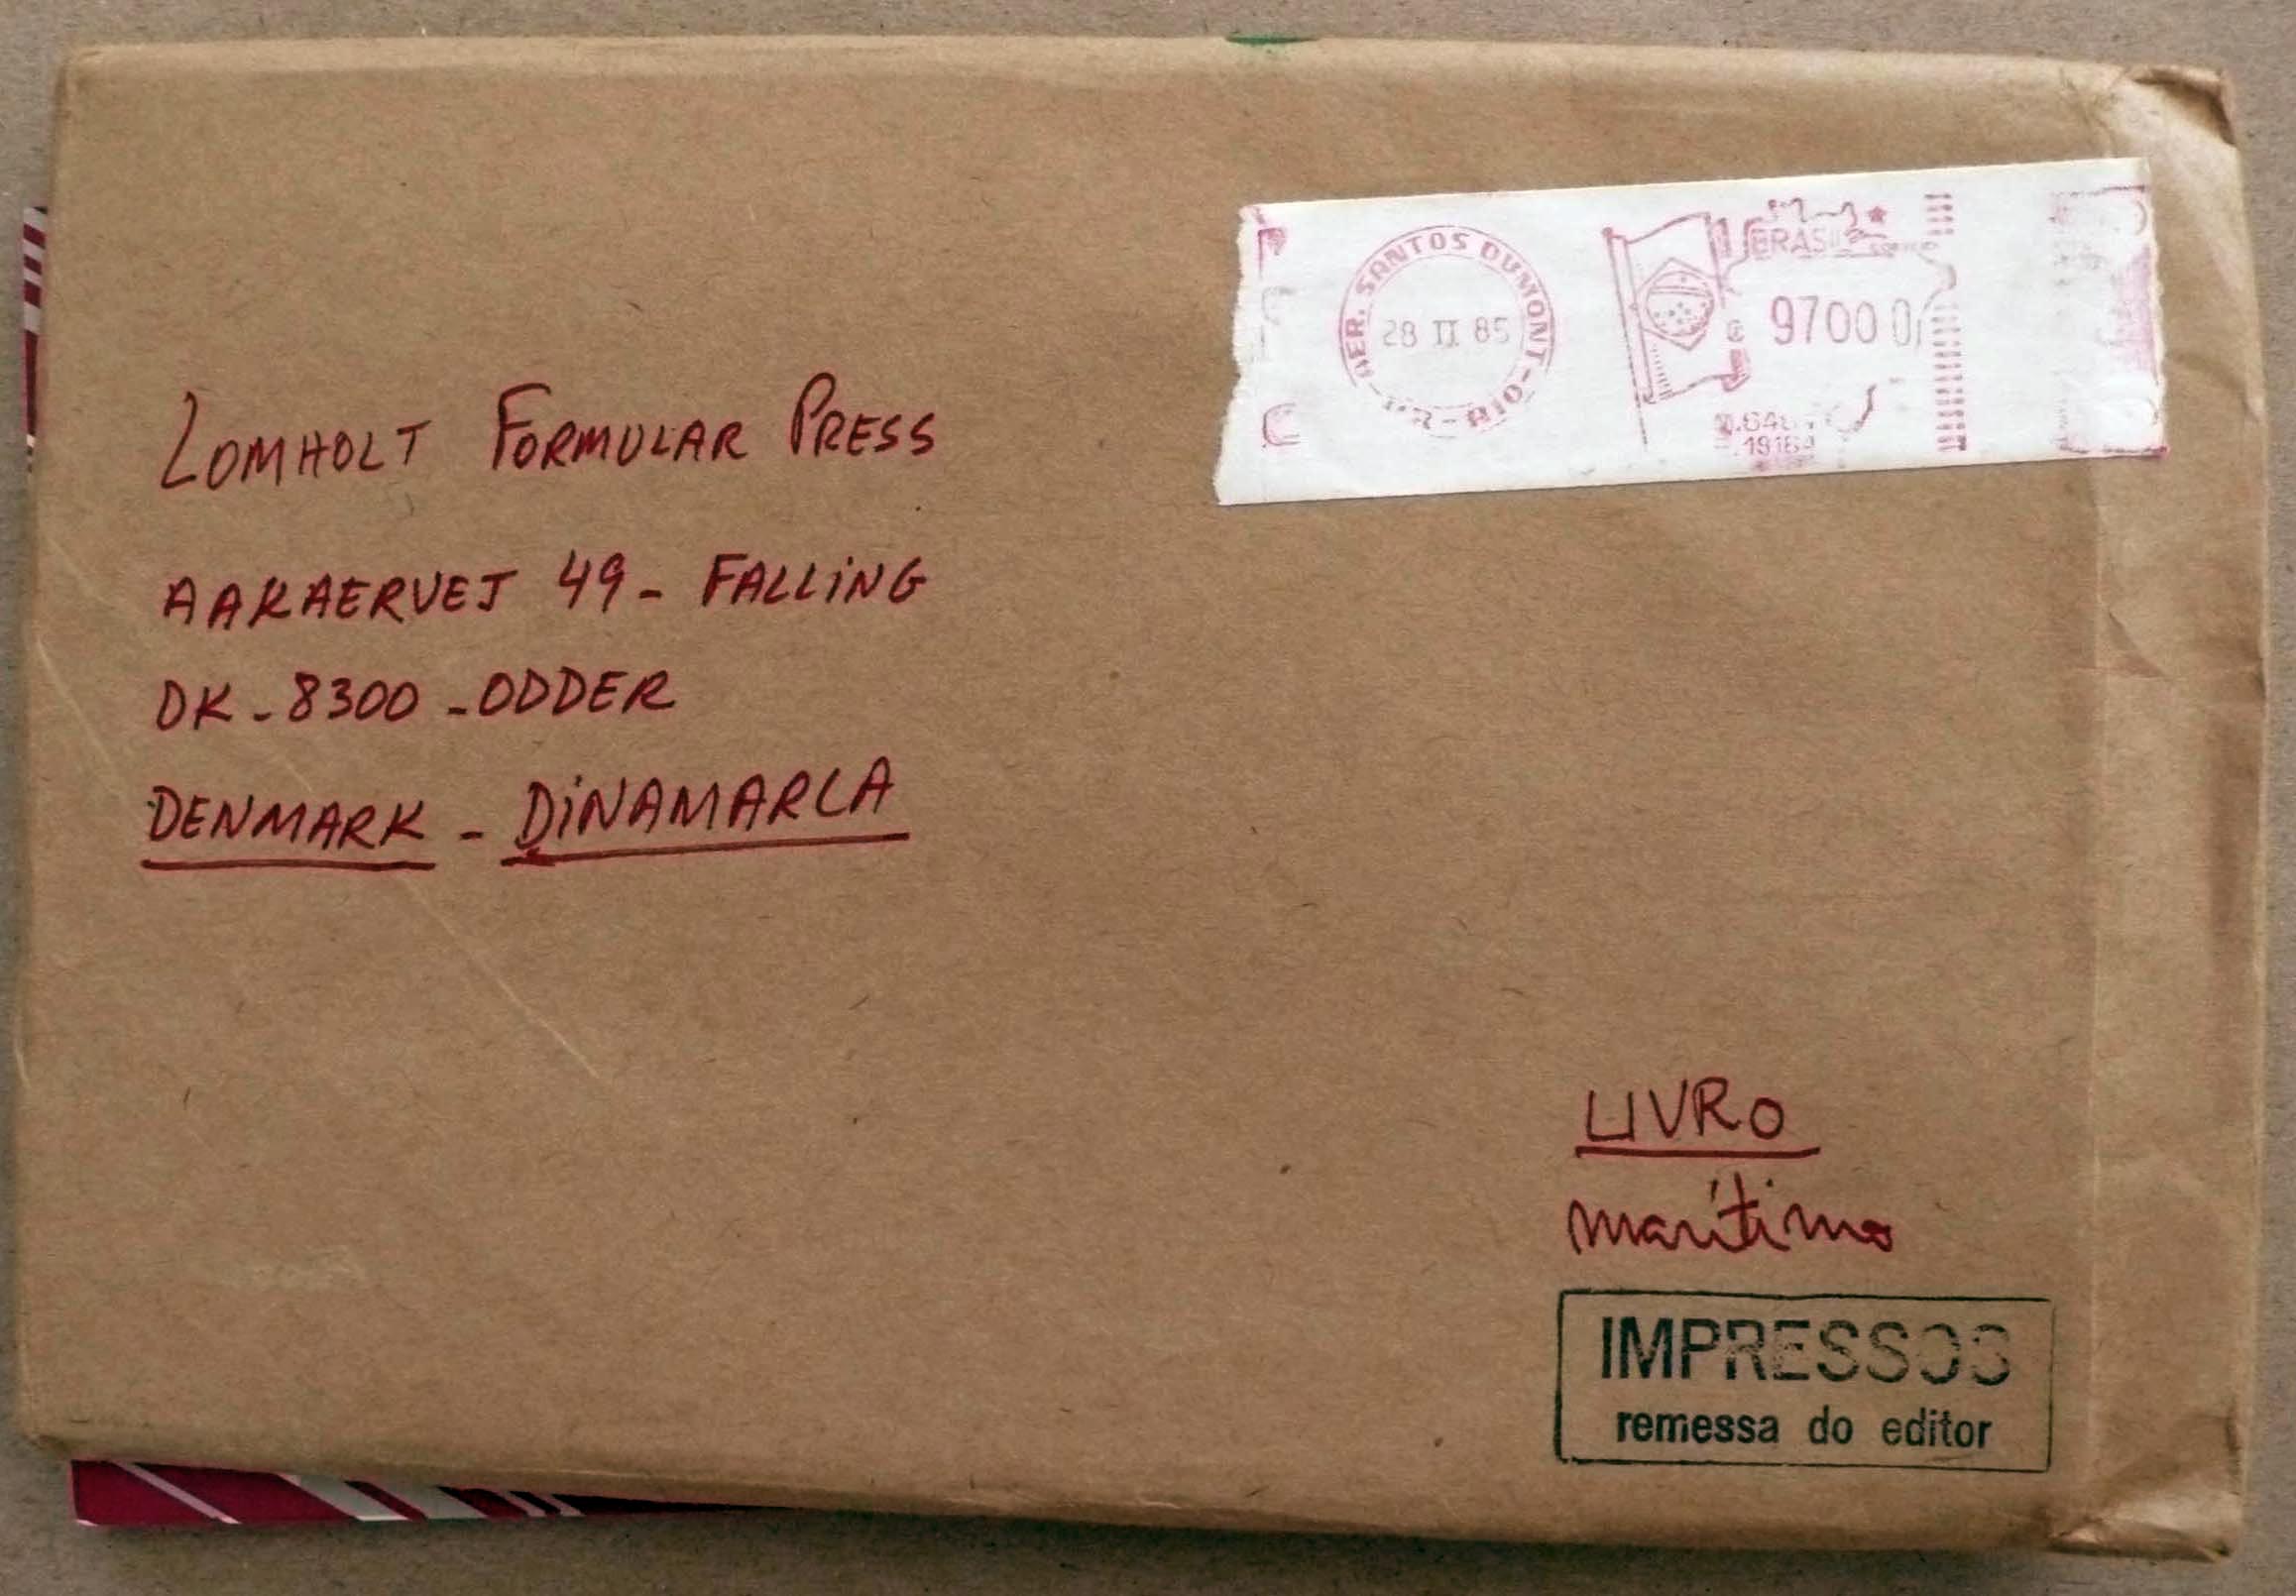 LOMHOLT FORMULAR PRESS
AAKAERVEJ 49 - FALLING
DK - 8300 - ODDER
DENMARK - DINAMARCA
AER. SANTOS DUMONT - RIO -
28 II 85
BRASIL
97000
LIVRO
marítimo
IMPRESSOS
remessa do editor